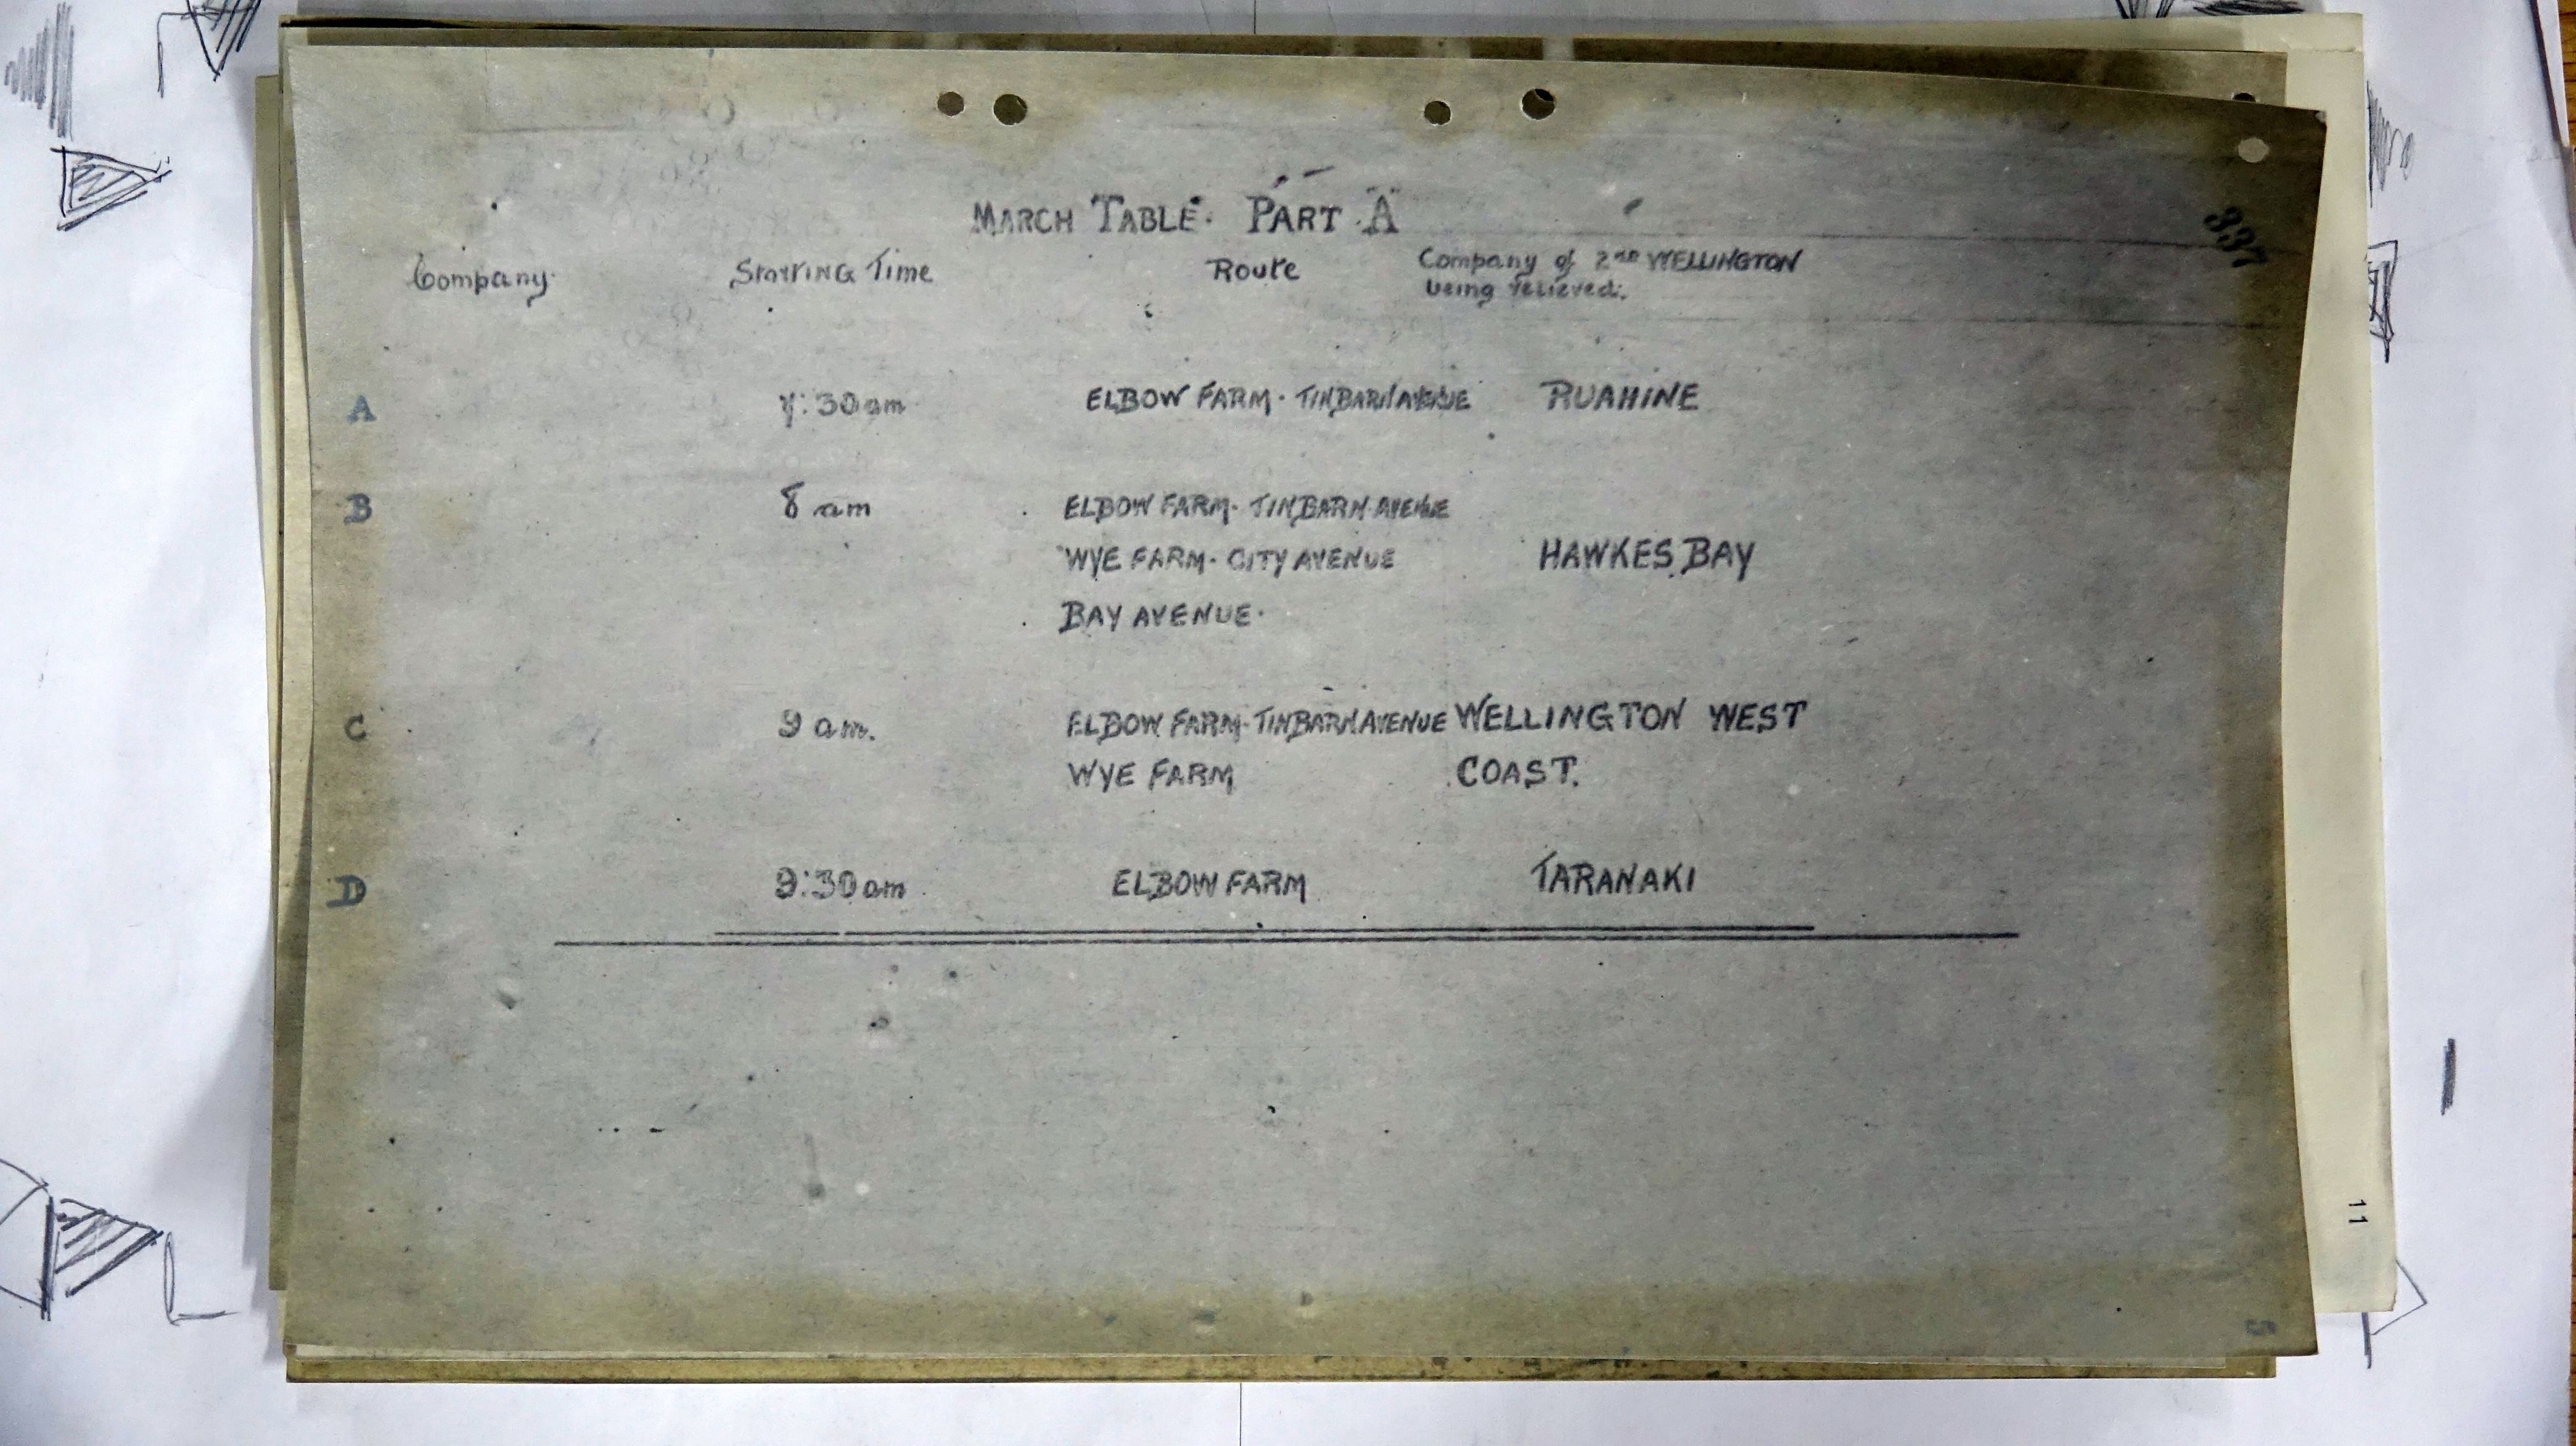 337
MARCH TABLE. PART A
Company. Starting Time Route Company of 2nd WELLINGTON
being relieved.
A 7:30am ELBOW FARM. TINBARN AVENUE RUAHINE
B 8 am ELBOW FARM. TINBARN AVENUE
WYE FARM. CITY AVENUE HAWKES BAY
BAY AVENUE.
C 9 am. ELBOW FARM. TINBARN AVENUE WELLINGTON WEST
WYE FARM COAST.
D 9:30am ELBOW FARM TARANAKI
11